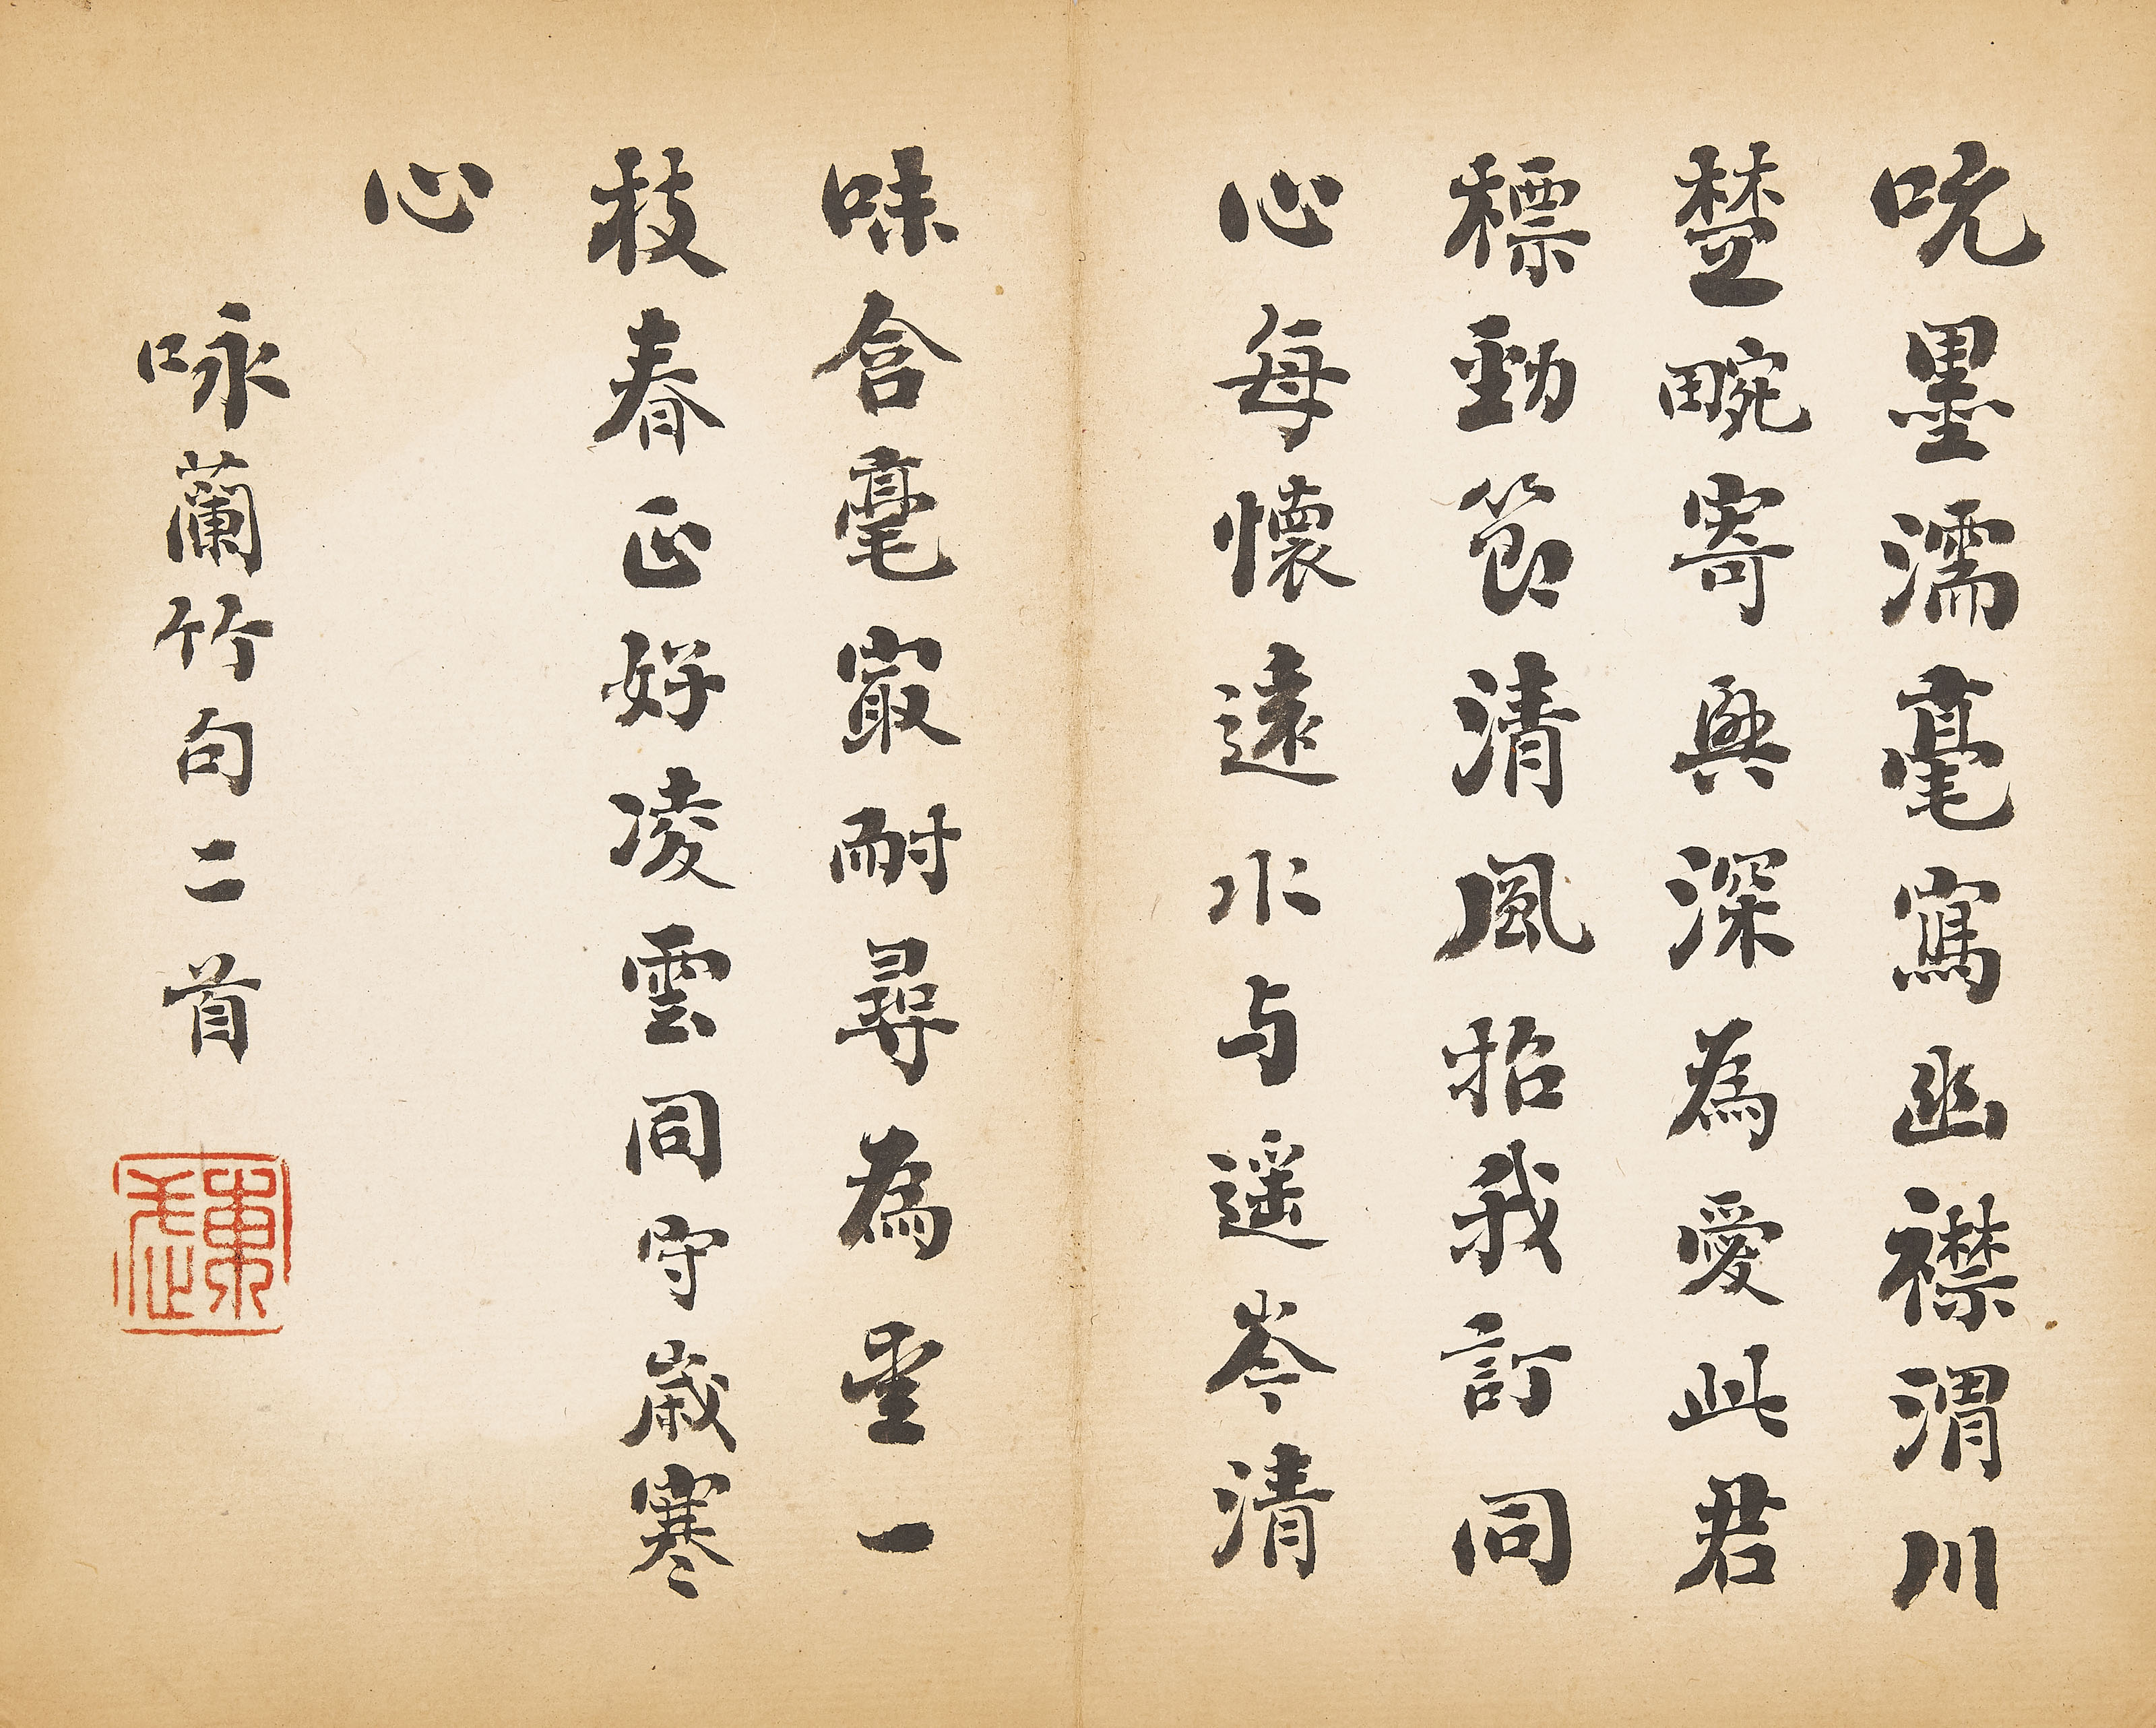 吮墨濡毫寫幽襟渭川
楚畹寄興深為愛此君
標勁節清風招我訂同
心每懷遠水与遥岑清
味含毫寂耐尋為愛一
枝春正好凌雲同守歲寒
心
咏蘭竹句二首